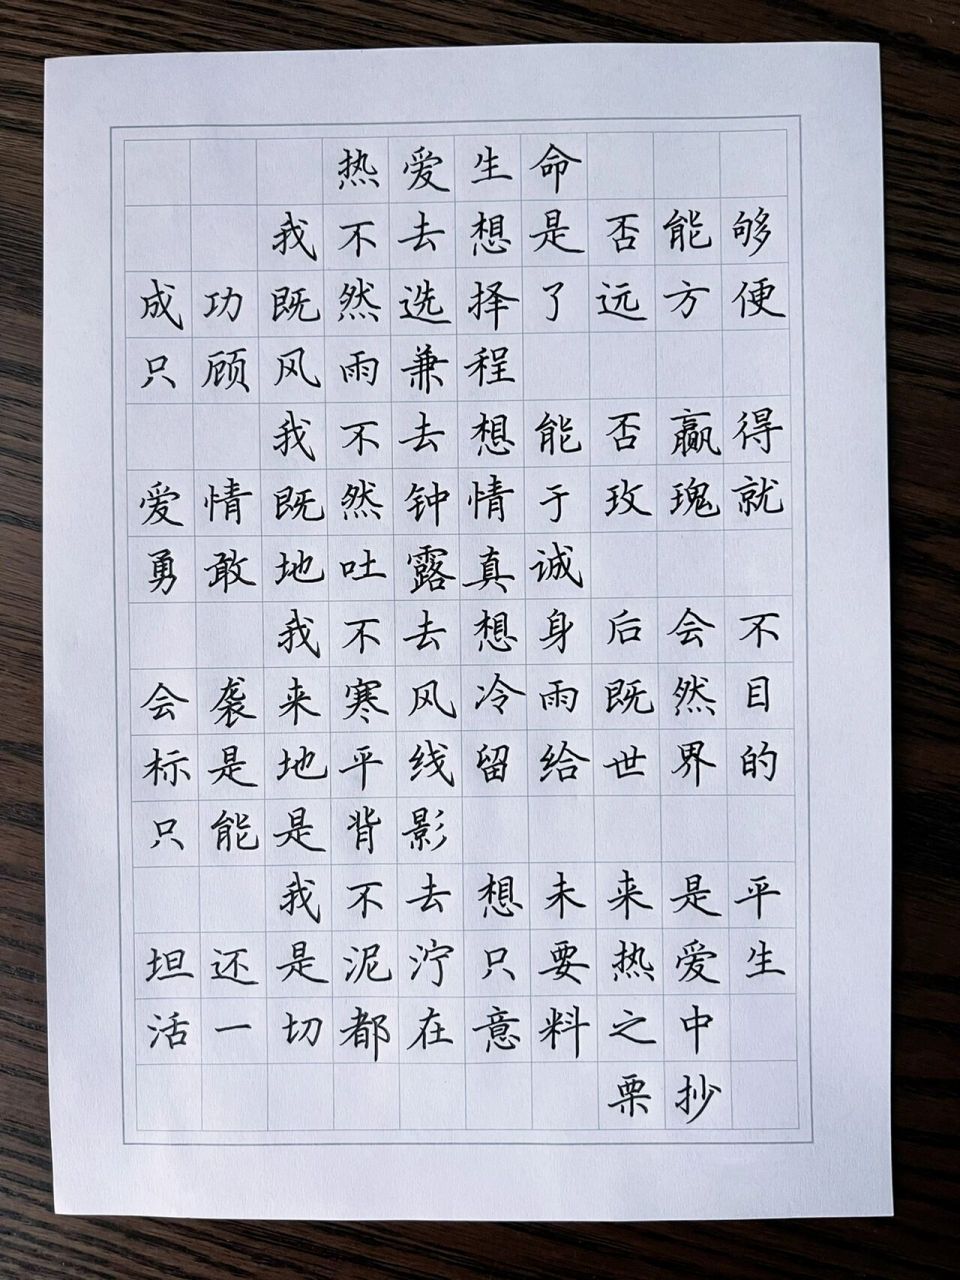 热爱生命
我不去想是否能够
成功既然选择了远方便
只顾风雨兼程
我不去想能否赢得
爱情既然钟情于玫瑰就
勇敢地吐露真诚
我不去想身后会不
会袭来寒风冷雨既然目
标是地平线留给世界的
只能是背影
我不去想未来是平
坦还是泥泞只要热爱生
活一切都在意料之中
栗抄